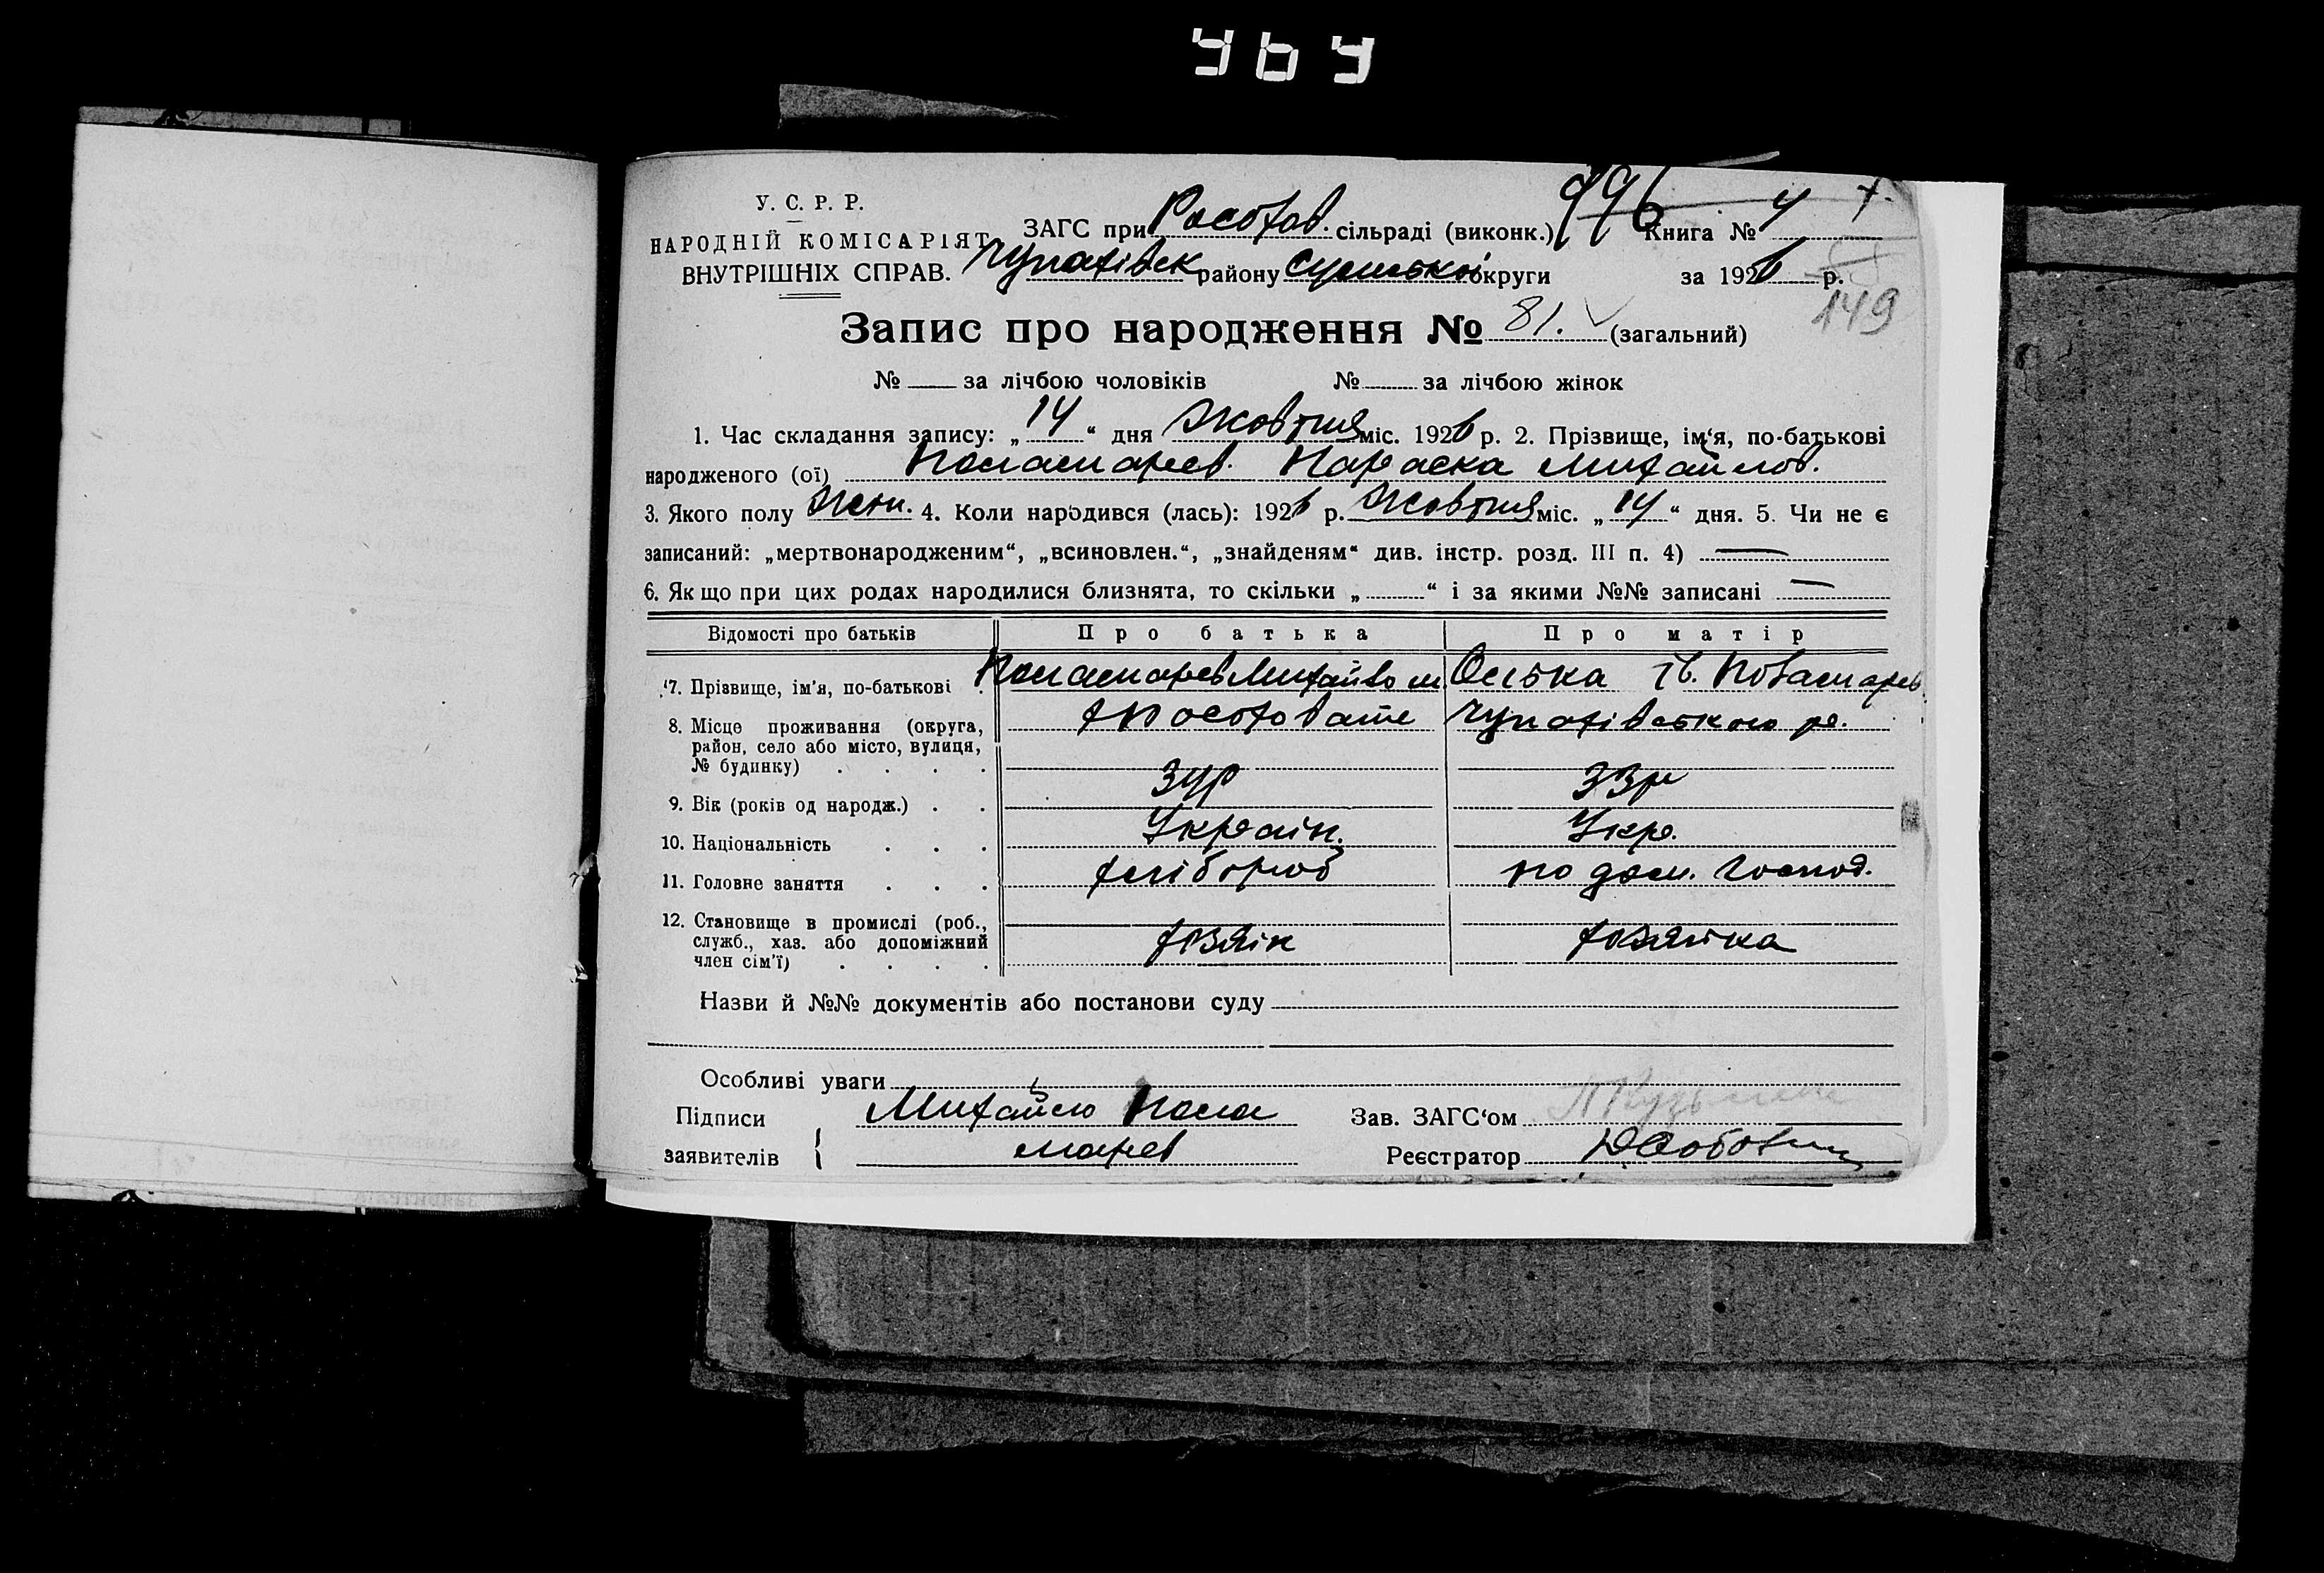 У. С. Р. Р.
НАРОДНІЙ КОМІСАРІЯТ
ВНУТРІШНІХ СПРАВ.
ЗАГС при Росохов. сільраді (виконк.) Книга № 4
Чупахівск району Сумської округи за 1926 р.
149
Запис про народження № 81. (загальний)
№ за лічбою чоловіків № за лічбою жінок
1. Час складання запису: „14“ дня Жовтня міс. 1926 р. 2. Прізвище, ім‘я, по-батькові
народженого (ої) Параска Михайлов.
3. Якого полу Жін. 4. Коли народився (лась): 1926 р. Жовтня міс. „14“ дня. 5. Чи не є
записаний: „мертвонародженим“, „всиновлен.“, „знайденям“ див. інстр. розд. III п. 4) —
6. Якщо при цих родах народилися близнята, то скільки „ “ і за якими №№ записані —
Відомості про батьків Про батька Про матір
7. Прізвище, ім'я, по-батькові . Михайло Оліка Ів.
8. Місце проживання (округа, район, село або місто, вулиця, № будинку) . . . . Чупахівського ра.
9. Вік (років од народж.) . . 34р 33р
10. Національність . . . Україн. Укра.
11. Головне заняття . . . хлібороб по дом. господ.
12. Становище в промислі (роб., служб., хаз. або допоміжний член сім'ї) . . . . хозяїн хозяйка
Назви й №№ документів або постанови суду
Особливі уваги
Підписи Михайло Зав. ЗАГС‘ом
заявителів Реєстратор